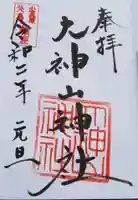 奉拝
大神山神社
令和二年 元旦